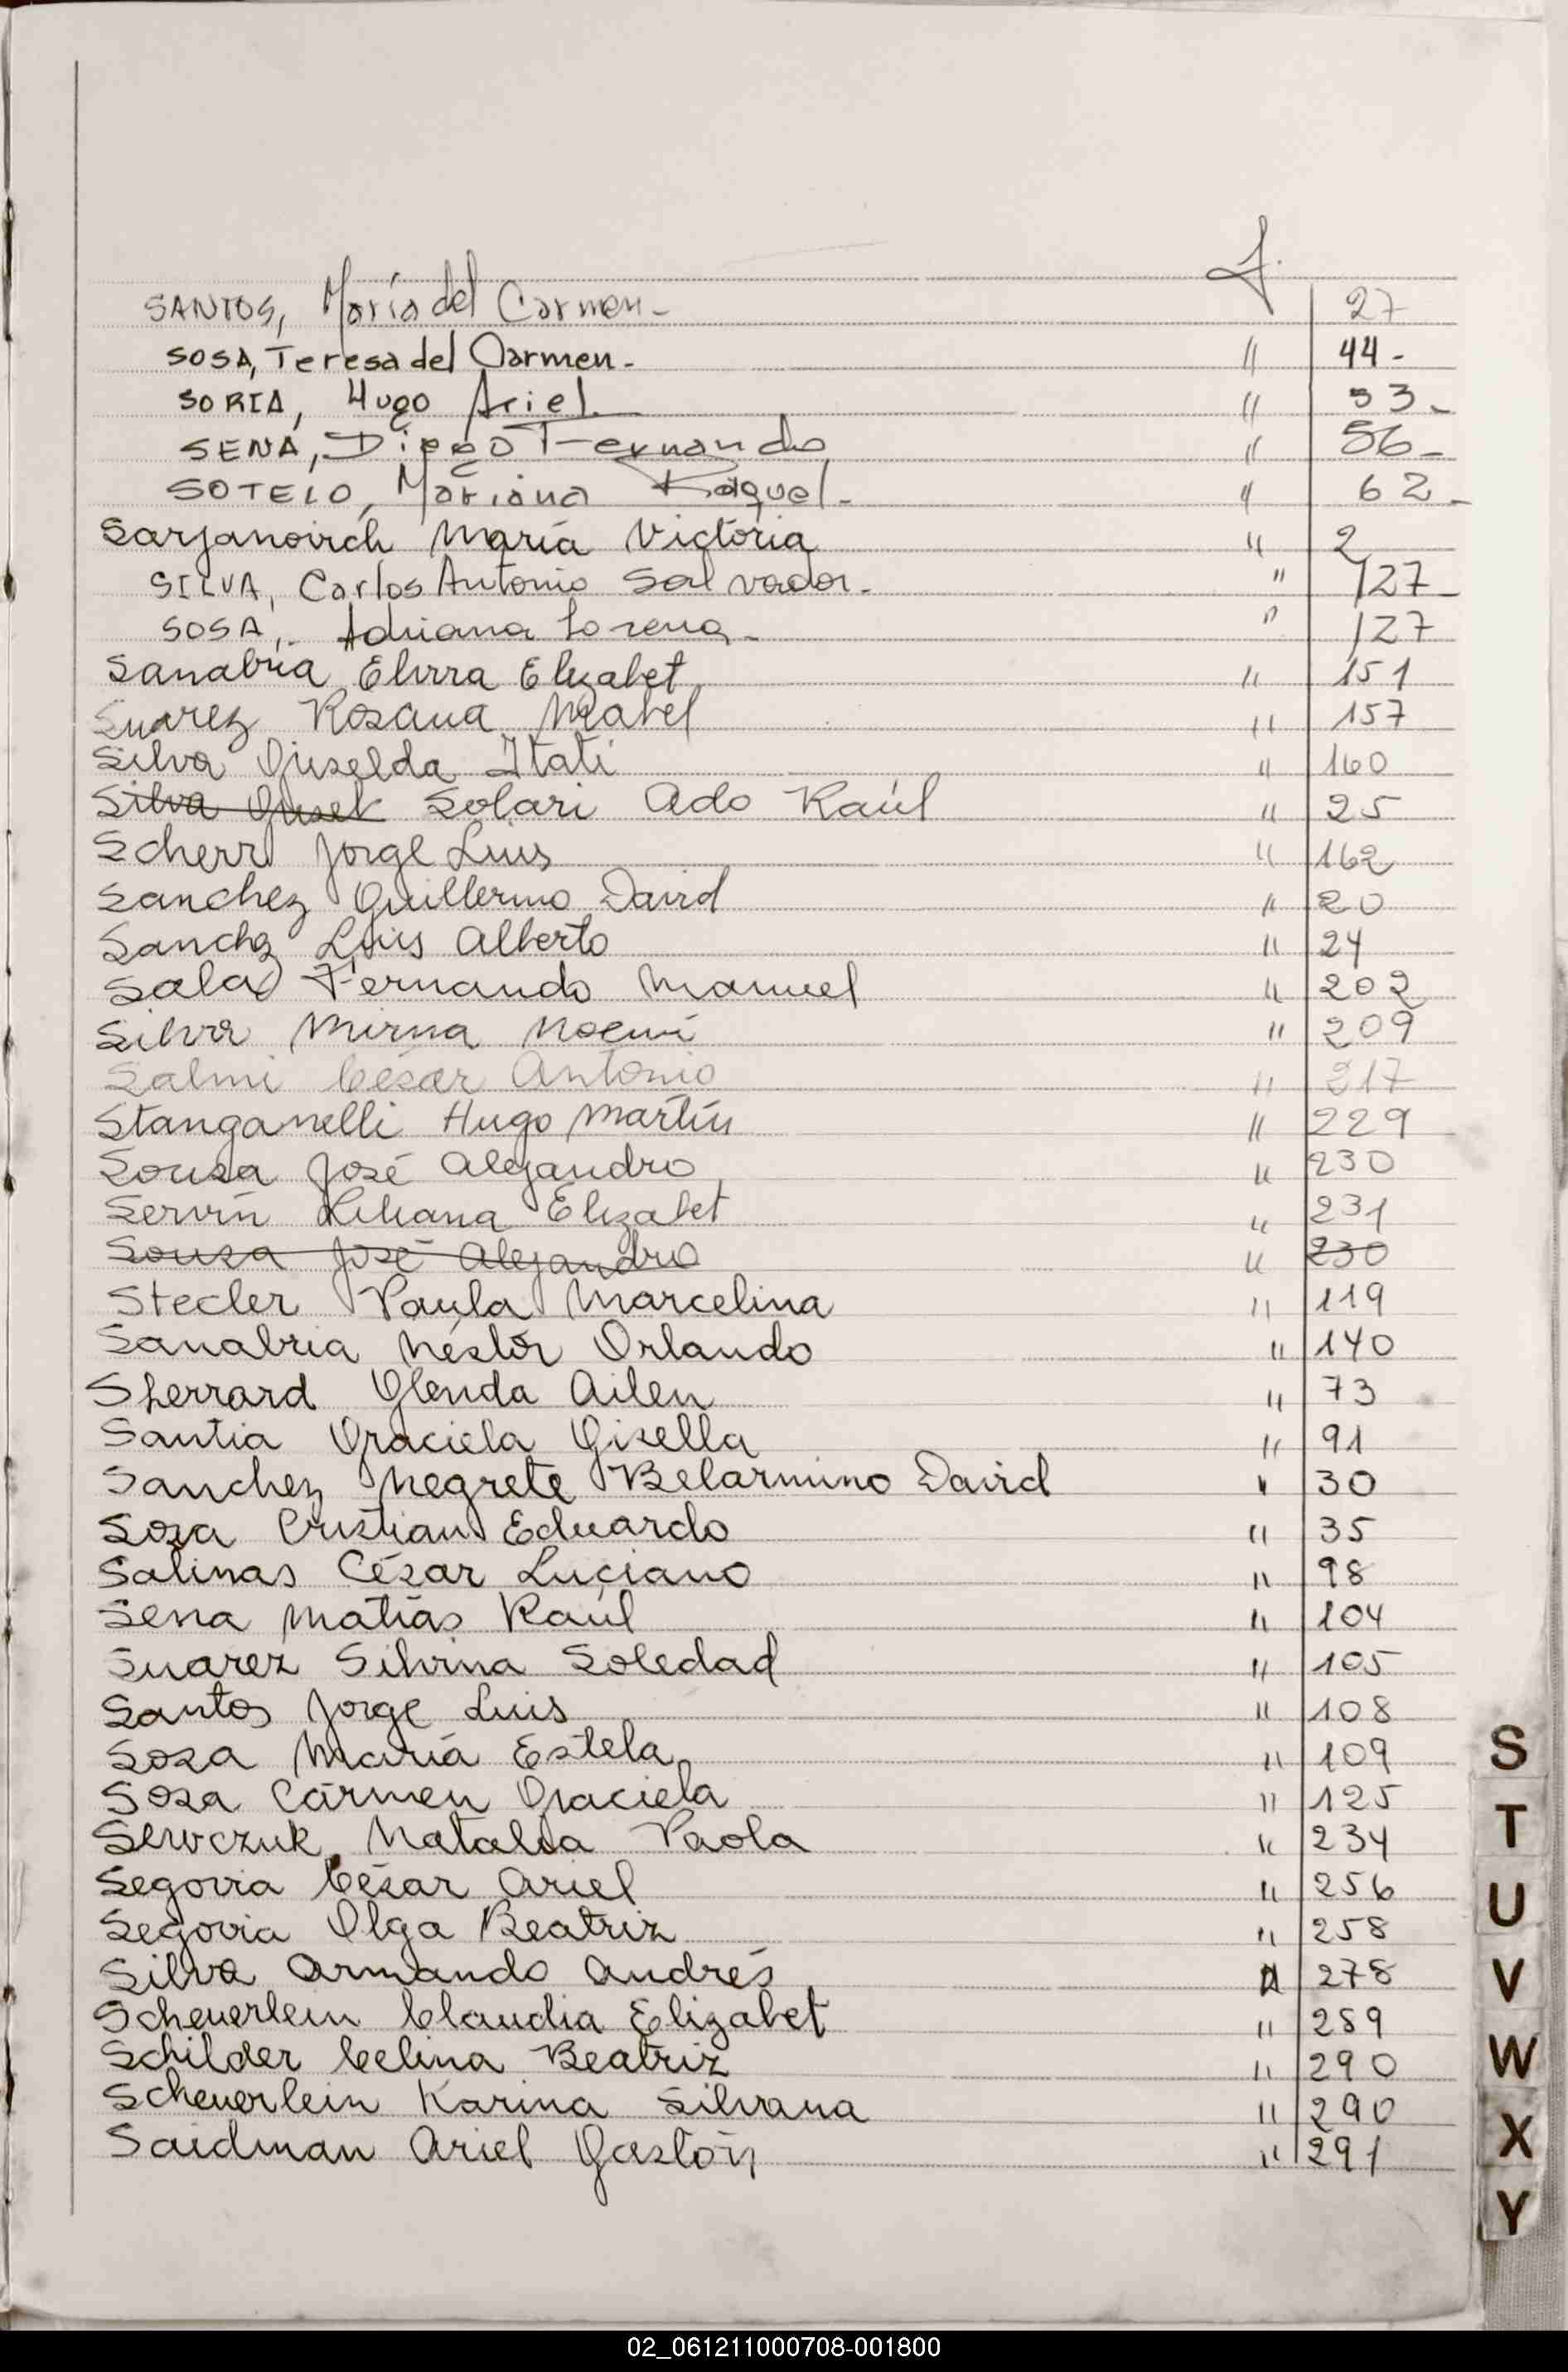 f.
SANTOS, María del Carmen - 27
SOSA, Teresa del Carmen - " 44 -
SORIA, Hugo Ariel " 53 -
SENA, Diego Fernando " 56 -
SOTELO, Mariana Raquel - " 62 -
Sarjanovich María Victoria " 2
SILVA, Carlos Antonio Salvador - " 127 -
SOSA, - Adriana Lorena - " 127
Sanabria Elvira Elizabet " 151
Suarez Rosana Mabel " 157
Silva Griselda Itati " 160
Silva Grisel Solari Ado Raúl " 25
Scherr Jorge Luis " 162
Sanchez Guillermo David " 20
Sanchez Luis Alberto " 24
Sala Fernando Manuel " 202
Silva Mirna Noemí " 209
Salmi César Antonio " 217
Stanganelli Hugo Martín " 229
Souza José Alejandro " 230
Servín Liliana Elizabet " 231
Souza José Alejandro " 230
Stecler Paula Marcelina " 119
Sanabria Néstor Orlando " 140
Sherrard Glenda Ailen " 73
Santia Graciela Gisella " 91
Sanchez Negrete Belarmino David " 30
Sosa Cristian Eduardo " 35
Salinas César Luciano " 98
Sena Matías Raúl " 104
Suarez Silvina Soledad " 105
Santos Jorge Luis " 108
Sosa María Estela " 109
Sosa Carmen Graciela " 125
Sewczuk Natalia Paola " 234
Segovia César Ariel " 256
Segovia Olga Beatriz " 258
Silva Armando Andrés " 278
Scheuerlein Claudia Elizabet " 289
Schilder Celina Beatriz " 290
Scheuerlein Karina Silvana " 290
Saidman Ariel Gastón " 291
S
T
U
V
W
X
Y
02_061211000708-001800